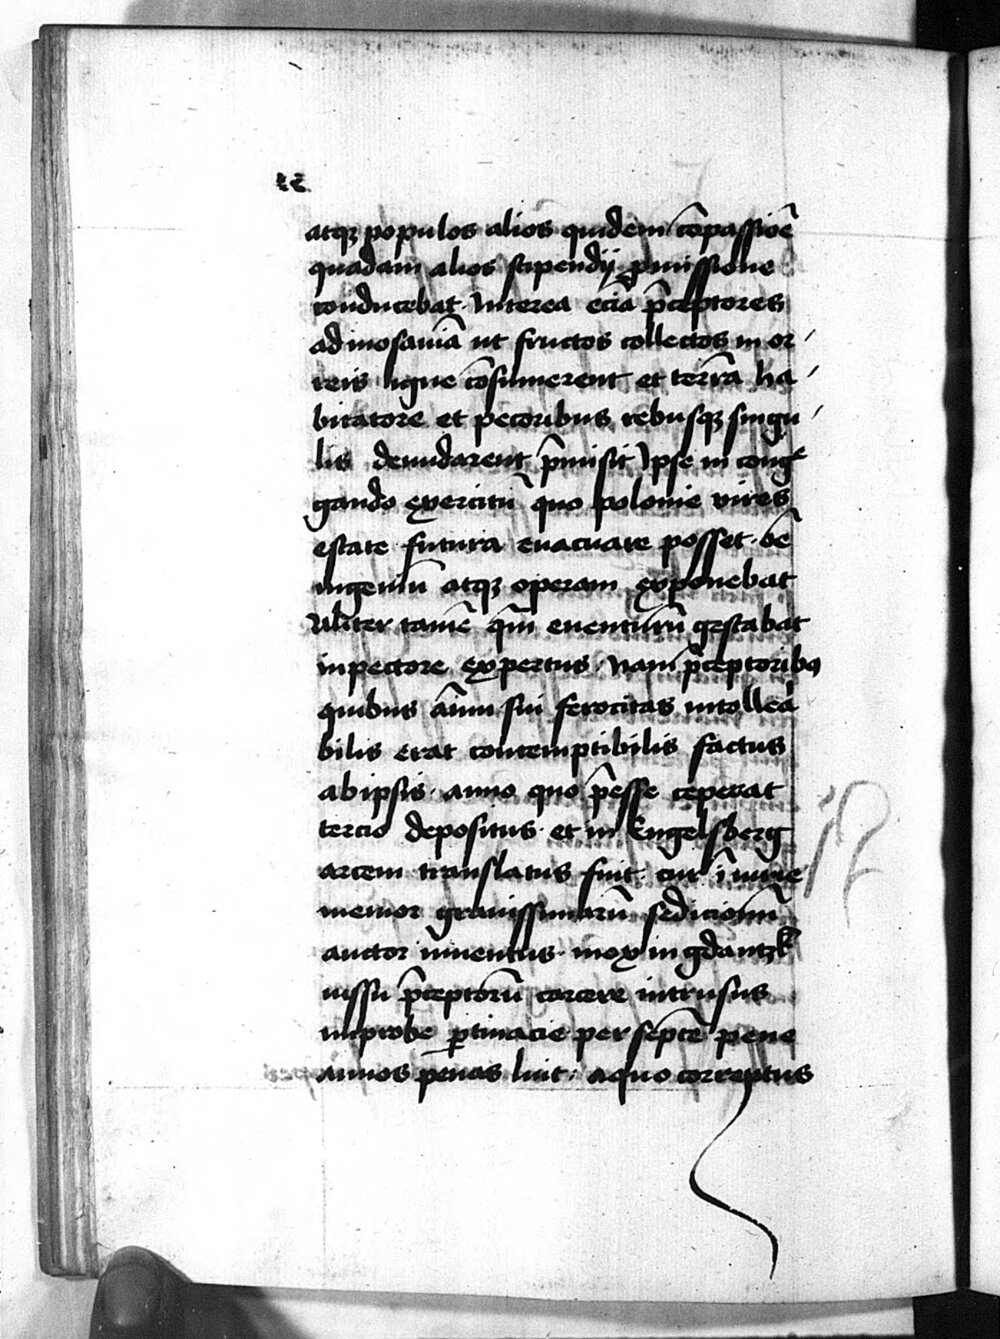 atqꝫ populos alios quidem cōpassiōe
quadam alios stipendij ꝓmissione
conducebat. Interea eciā p̄ceptores
ad mosauiā ut fructos collectos in or
reis igne cōsumerent et terrā ha
bitatore et pecoribus rebusqꝫ singu
lis denudarent p̄misit Ipse in cong̃
gando exercitū quo polonie vires
estate futura euacuare posset. oē
ingeniū atqꝫ operam exponebat
Aliter tamē q̄m euenturū gestabat
in pectore expertus. nam p̄ceptoribꝰ
quibus aīmi sui ferocitas intollea
bilis erat contemptibilis factus
ab ipsis. anno quo p̄esse ceperat
tercio depositus. et in Engelsberg
arcem translatus fuit. cur īiurie
memor grauissimarū sedicionū
auctor inuentus. mox in gdantzk
iussu p̄ceptorū carcere intrusus
improbe ꝑtinacie per septē pene
annos penas luit. a quo correptus